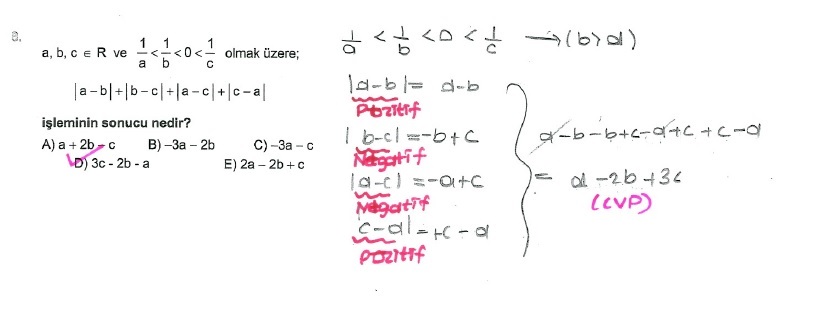 8.
a, b, c ∈ R ve 1/a < 1/b < 0 < 1/c olmak üzere;
|a−b|+|b−c|+|a−c|+|c−a|
işleminin sonucu nedir?
A) a + 2b − c B) −3a − 2b C) −3a − c
D) 3c - 2b - a E) 2a − 2b + c
1/a < 1/b < 0 < 1/c → (b > a)
|a-b| = a-b
Pozitif
|b-c| = -b+c
Negatif
|a-c| = -a+c
Negatif
|c-a| = +c - a
pozitif
a-b-b+c-a+c+c-a
= a-2b+3c
(CVP)